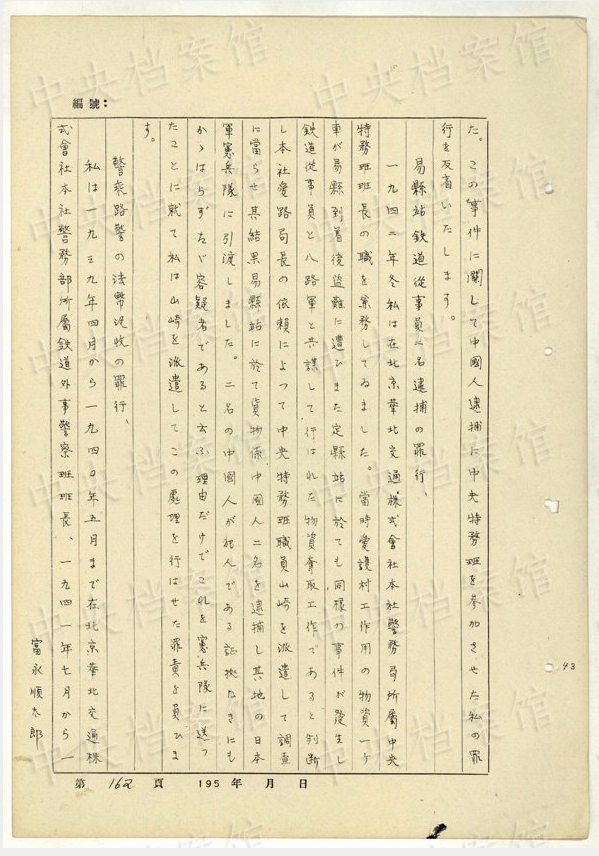 編號：
た。この事件に關して中國人逮捕に中央特務班を参加させた私の罪
行を反省いたします。
易縣站鉄道従事員二名逮捕の罪行、
一九四二年冬私は在北京華北交通株式會社本社警務局所屬中央
特務班班長の職を業務してゐました。當時愛護村工作用の物資一ケ
車が易縣到着後盗難に遭ひまた定縣站に於ても同様の事件が發生し
鉄道従事員と八路軍と共謀して行はれた物資奪取工作であると判断
し本社愛路局長の依頼によつて中央特務班職員山崎を派遣して調査
に當らせ其結果易縣站に於て貨物係中國人二名を逮捕し其地の日本
軍憲兵隊に引渡しました。二名の中國人が犯人である証拠なきにも
かゝはらずただ容疑者であると云ふ理由だけでこれを憲兵隊に送つ
たことに就て私は山崎を派遣してこの処理を行はせた罪責を負ひま
す。
警乘路警の法幣沒收の罪行、
私は一九三九年四月から一九四〇年五月まで在北京華北交通株
式會社本社警務部所屬鉄道外事警察班班長、一九四一年七月から一
富永順太郎
43
第 162 頁 195 年 月 日
中央档案馆